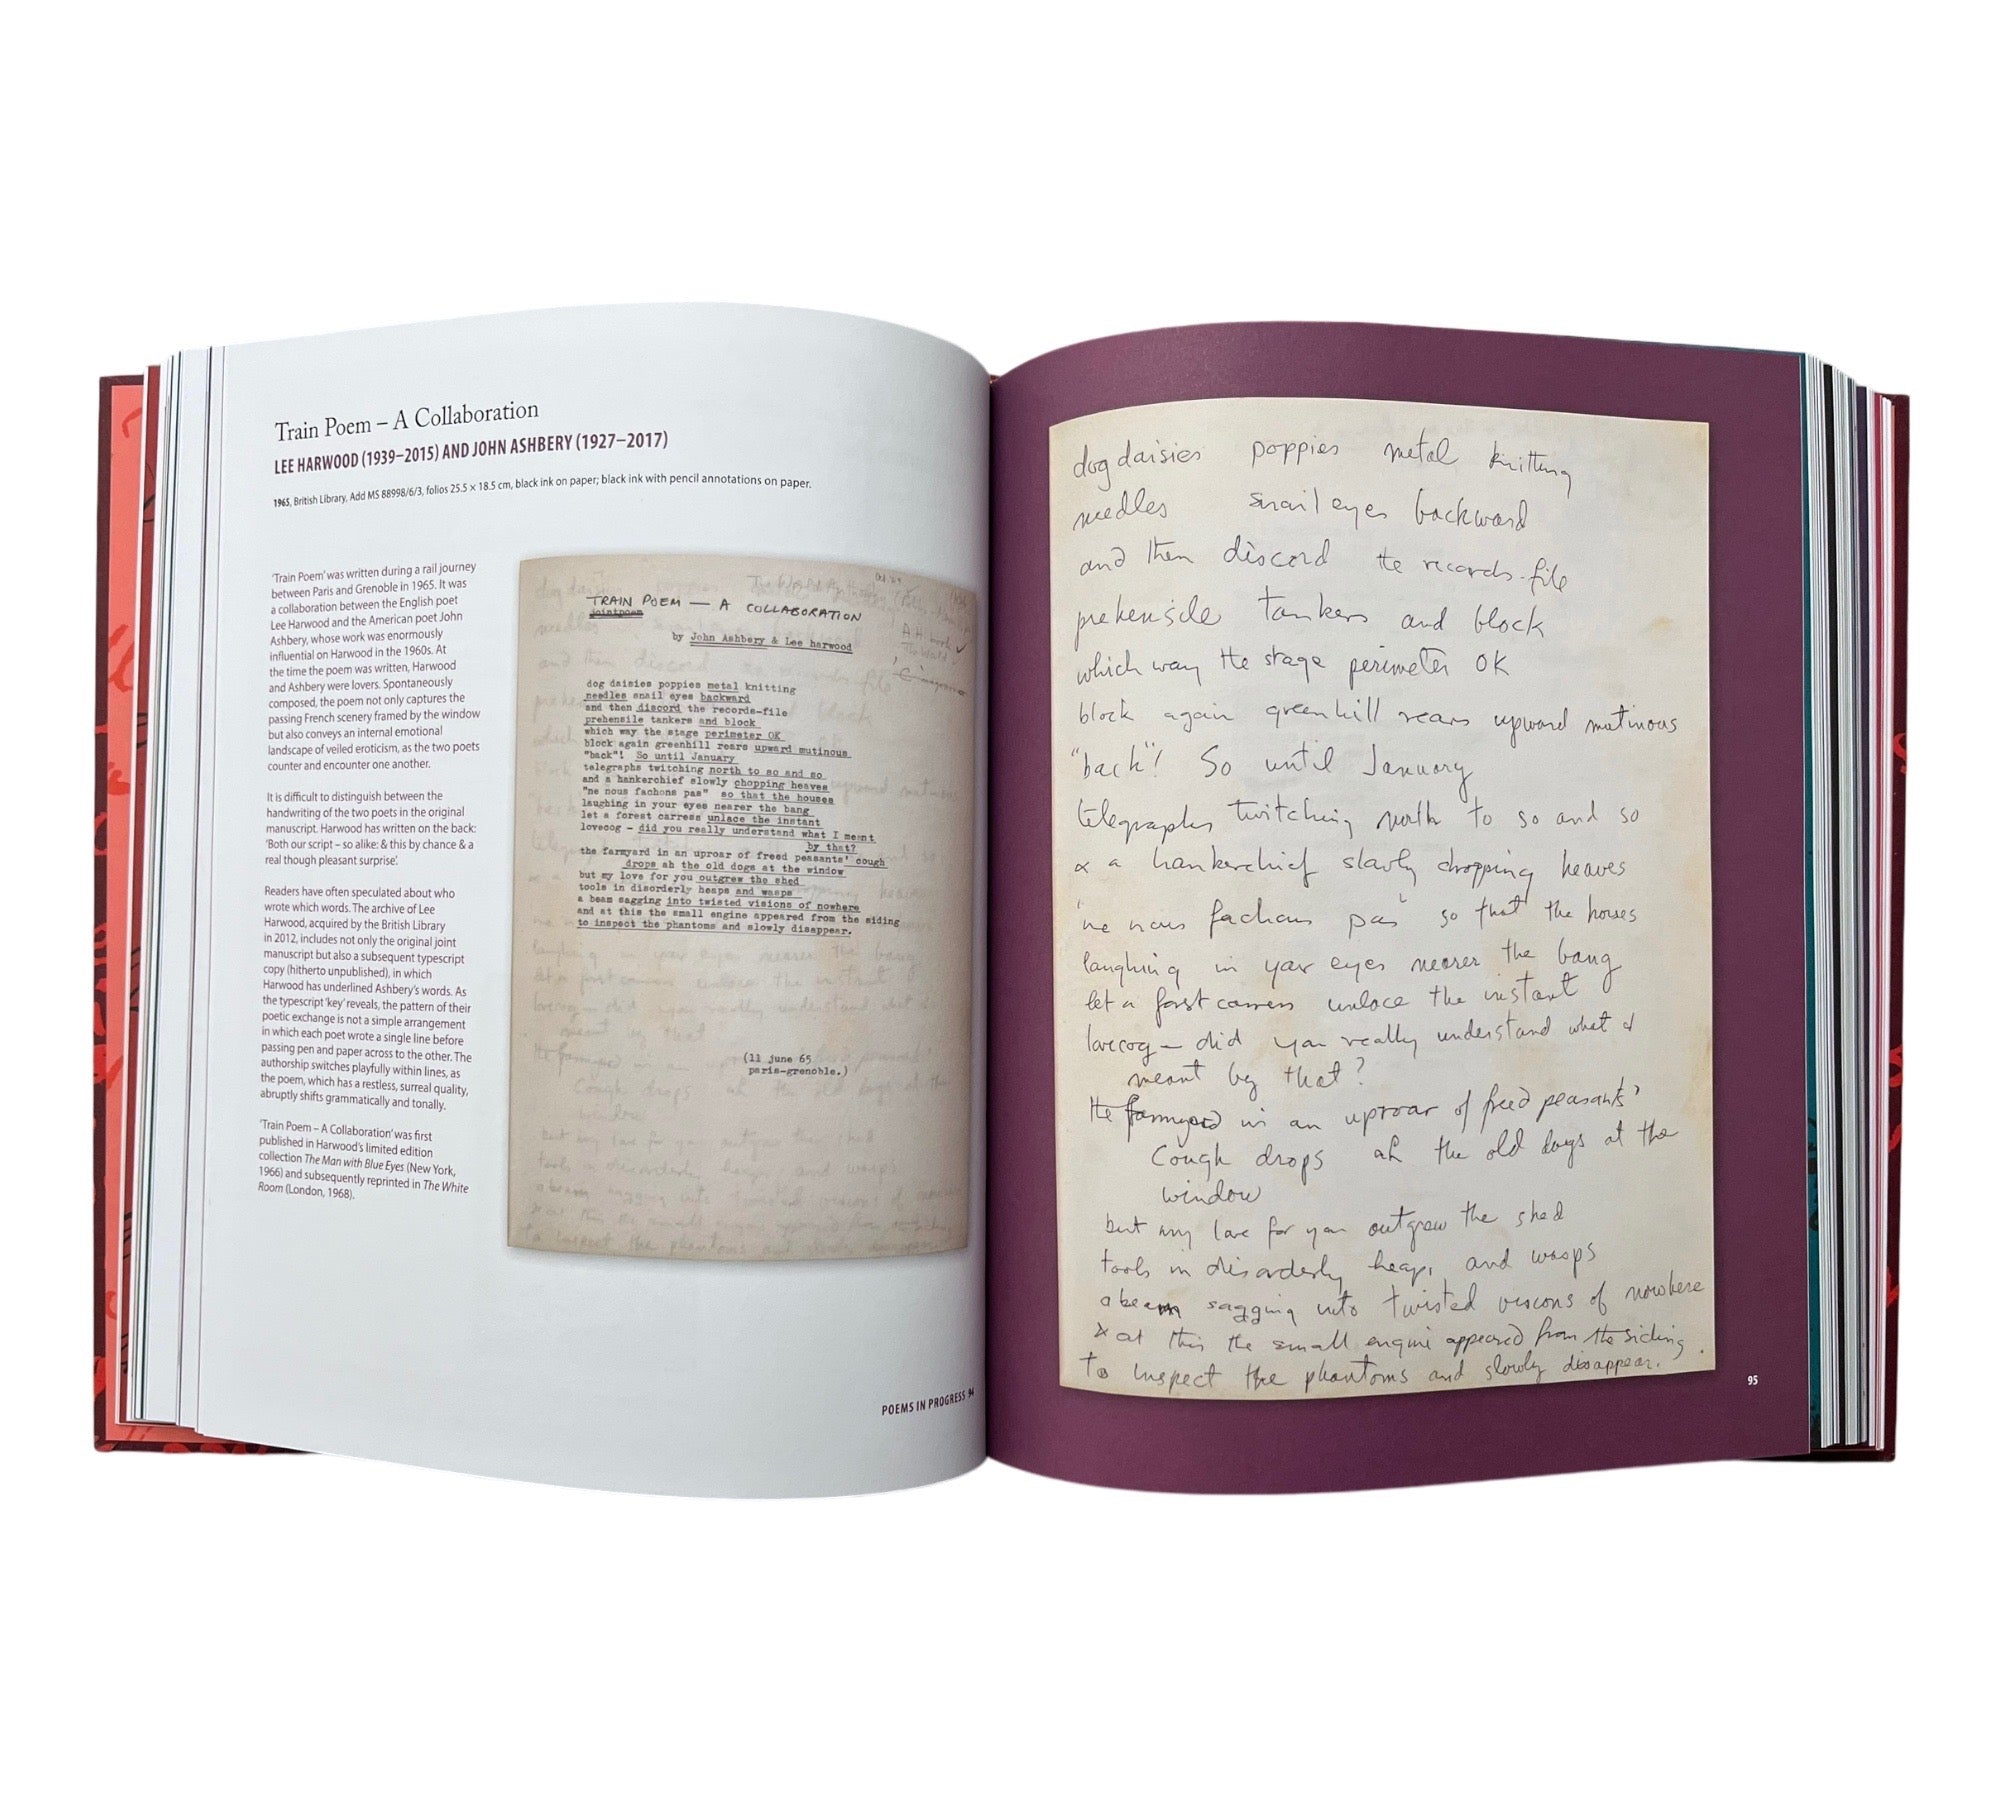 Train Poem – A Collaboration
LEE HARWOOD (1939–2015) AND JOHN ASHBERY (1927–2017)
1965, British Library, Add MS 88998/6/3, folios 25.5 × 18.5 cm, black ink on paper; black ink with pencil annotations on paper.
'Train Poem' was written during a rail journey
between Paris and Grenoble in 1965. It was
a collaboration between the English poet
Lee Harwood and the American poet John
Ashbery, whose work was enormously
influential on Harwood in the 1960s. At
the time the poem was written, Harwood
and Ashbery were lovers. Spontaneously
composed, the poem not only captures the
passing French scenery framed by the window
but also conveys an internal emotional
landscape of veiled eroticism, as the two poets
counter and encounter one another.
It is difficult to distinguish between the
handwriting of the two poets in the original
manuscript. Harwood has written on the back:
'Both our script – so alike: & this by chance & a
real though pleasant surprise'.
Readers have often speculated about who
wrote which words. The archive of Lee
Harwood, acquired by the British Library
in 2012, includes not only the original joint
manuscript but also a subsequent typescript
copy (hitherto unpublished), in which
Harwood has underlined Ashbery's words. As
the typescript 'key' reveals, the pattern of their
poetic exchange is not a simple arrangement
in which each poet wrote a single line before
passing pen and paper across to the other. The
authorship switches playfully within lines, as
the poem, which has a restless, surreal quality,
abruptly shifts grammatically and tonally.
'Train Poem – A Collaboration' was first
published in Harwood's limited edition
collection The Man with Blue Eyes (New York,
1966) and subsequently reprinted in The White
Room (London, 1968).
TRAIN POEM — A COLLABORATION
jointpoem
by John Ashbery & Lee harwood
dog daisies poppies metal knitting
needles snail eyes backward
and then discord the records-file
prehensile tankers and block
which way the stage perimeter OK
block again greenhill rears upward mutinous
"back"! So until January
telegraphs twitching north to so and so
and a hankerchief slowly chopping heaves
"ne nous fachons pas" so that the houses
laughing in your eyes nearer the bang
let a forest carress unlace the instant
lovecog – did you really understand what I meant
by that?
the farmyard in an uproar of freed peasants' cough
drops ah the old dogs at the window
but my love for you outgrew the shed
tools in disorderly heaps and wasps
a beam sagging into twisted visions of nowhere
and at this the small engine appeared from the siding
to inspect the phantoms and slowly disappear.
(11 june 65
paris-grenoble.)
POEMS IN PROGRESS 94
dog daisies poppies metal knitting
needles snail eyes backward
and then discord the records-file
prehensile tankers and block
which way the stage perimeter OK
block again greenhill rears upward mutinous
"back"! So until January
telegraphs twitching north to so and so
& a hankerchief slowly dropping heaves
'ne nous fachons pas' so that the houses
laughing in your eyes nearer the bang
let a forst carress unlace the instant
lovecog – did you really understand what I
meant by that?
the farmyard in an uproar of freed peasants'
cough drops ah the old dogs at the
window
but my love for you outgrew the shed
tools in disorderly heaps and wasps
a beam sagging into twisted visions of nowhere
& at this the small engine appeared from the siding
to inspect the phantoms and slowly disappear.
95